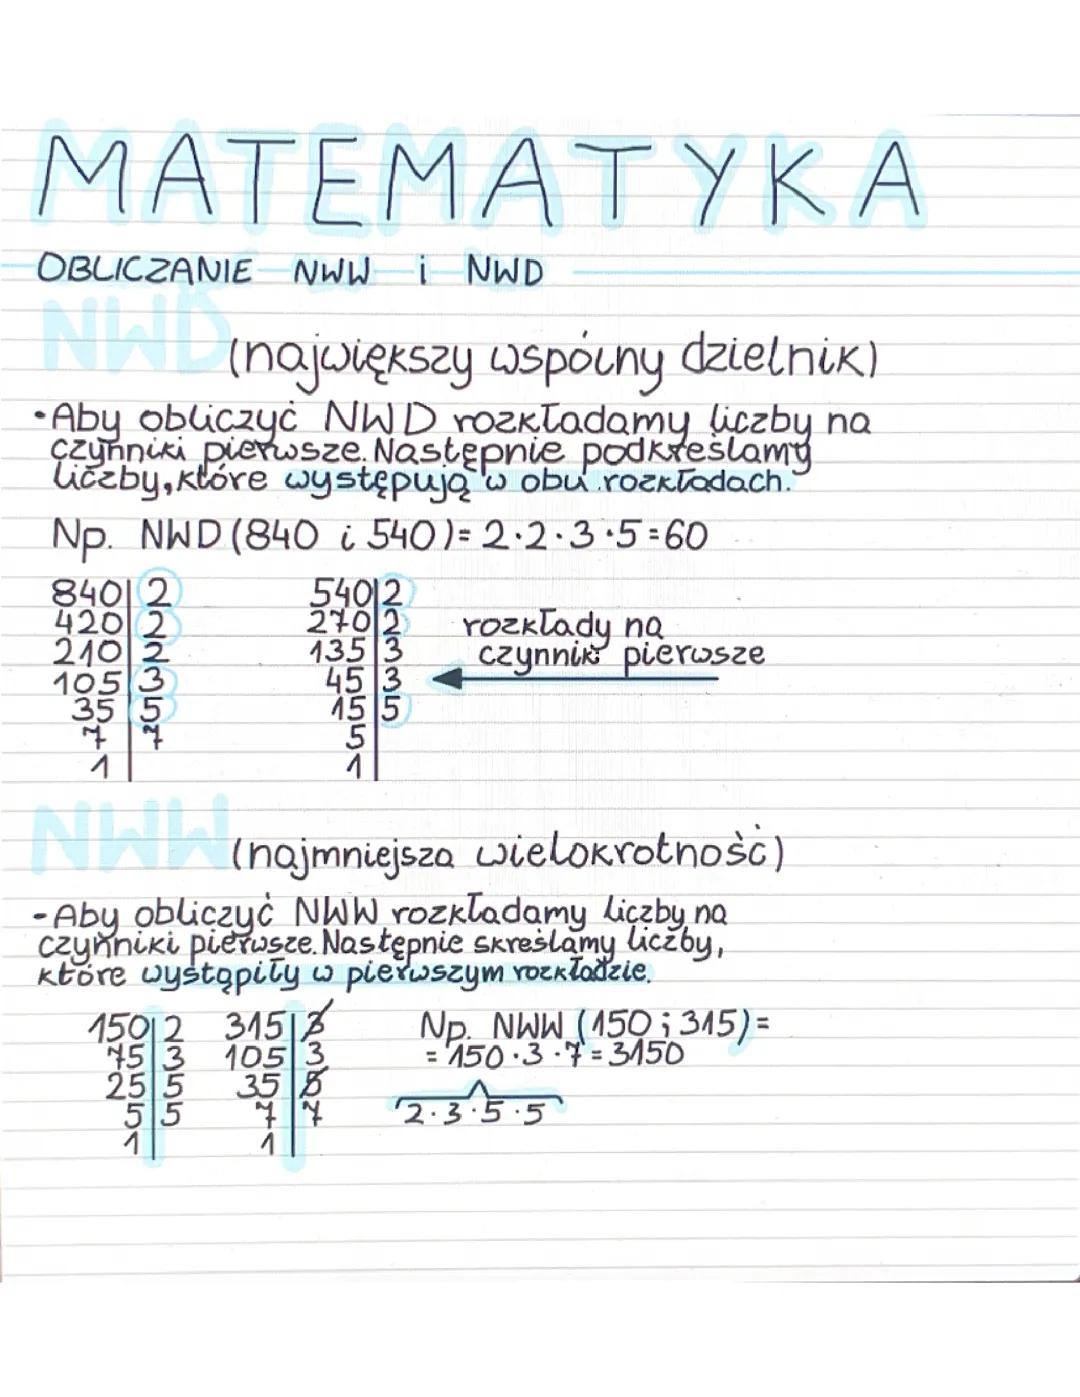 MATEMATYKA
OBLICZANIE NWW i NWD
NWD
(największy wspólny dzielnik)
•Aby obliczyć NWD rozkładamy liczby na
czynniki pierwsze. Następnie podkreślamy
liczby, które występują w obu rozkładach.
Np. NWD (840 i 540) = 2·2·3·5=60
840|2 540|2
420|2 270|2 rozkłady na
210|2 135|3 czynniki pierwsze
105|3 45|3
35|5 15|5
7|7 5|
1| 1|
NWW (najmniejsza wielokrotność)
-Aby obliczyć NWW rozkładamy liczby na
czynniki pierwsze. Następnie skreślamy liczby,
które wystąpiły w pierwszym rozkładzie.
150|2 315|3 Np. NWW (150 ; 315)=
75|3 105|3 = 150·3·7=3150
25|5 35|5
5|5 7|7 2·3·5·5
1| 1|